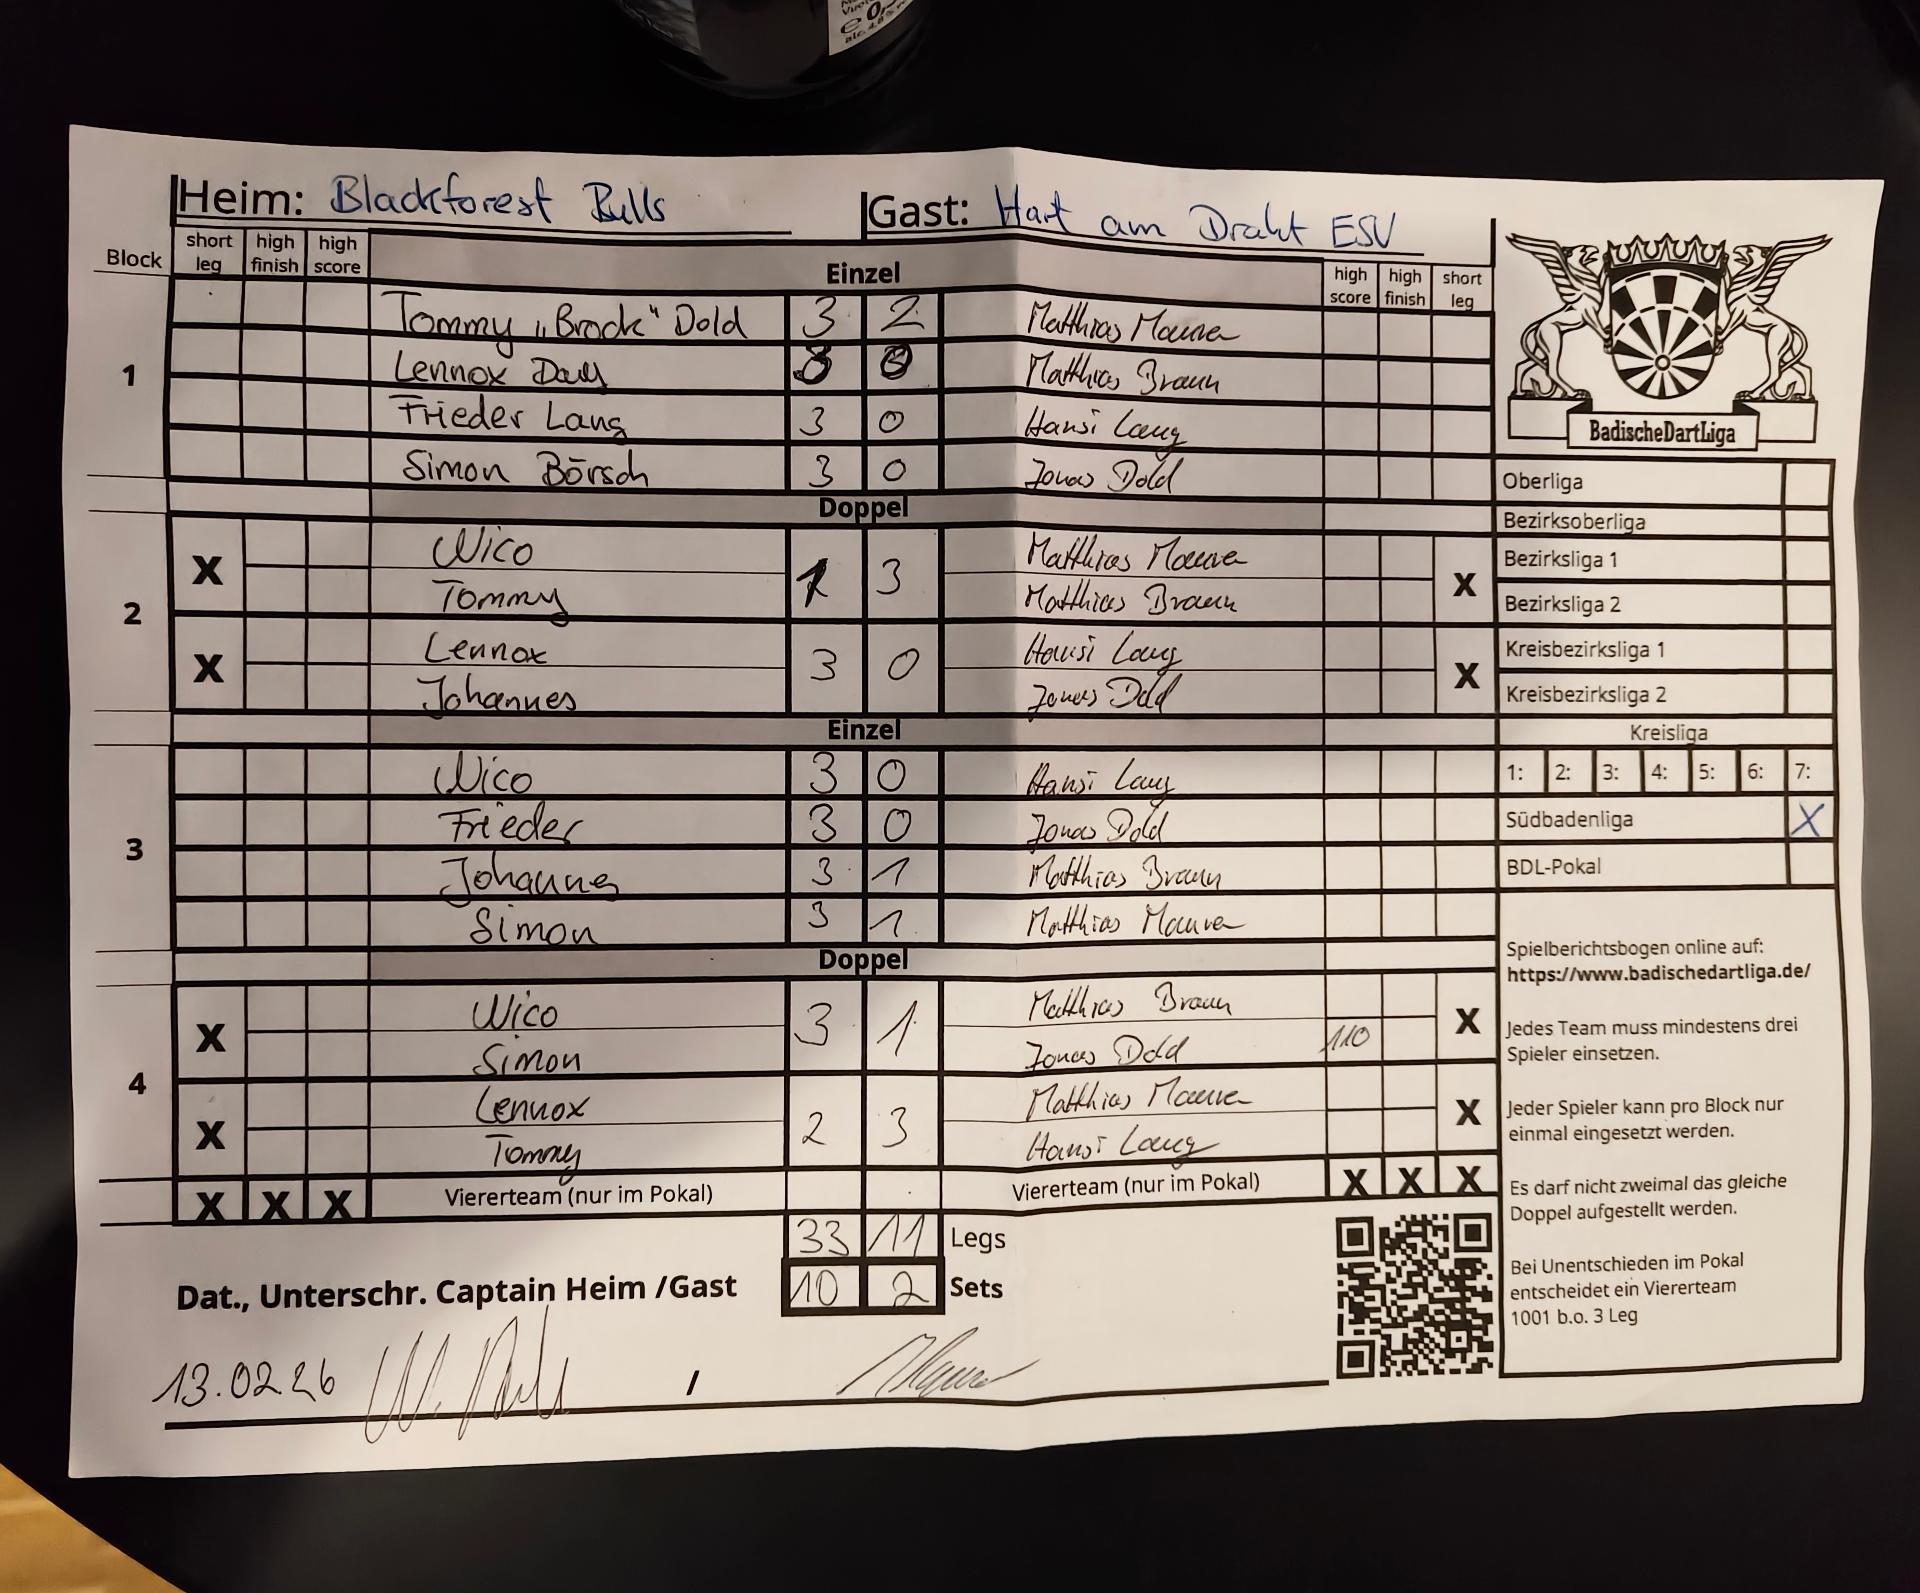 Heim: Blackforest Bulls Gast: Hart am Draht ESV
Block short leg high finish high score Einzel high score high finish short leg
1
Tommy „Brock“ Dold 3 2 Matthias Maurer
Lennox 3 0 Matthias Braun
Frieder Lang 3 0 Hansi Lang
Simon Börsch 3 0 Jonas Dold
Doppel
2
X Nico 1 3 Matthias Maurer X
Tommy Matthias Braun
X Lennox 3 0 Hansi Lang X
Johannes Jonas Dold
Einzel
3
Nico 3 0 Hansi Lang
Frieder 3 0 Jonas Dold
Johannes 3 1 Matthias Braun
Simon 3 1 Matthias Maurer
Doppel
4
X Nico 3 1 Matthias Braun X
Simon Jonas Dold 110
X Lennox 2 3 Matthias Maurer X
Tommy Hansi Lang
X X X Viererteam (nur im Pokal) Viererteam (nur im Pokal) X X X
33 11 Legs
10 2 Sets
Dat., Unterschr. Captain Heim /Gast
13.02.26 /
BadischeDartLiga
Oberliga
Bezirksoberliga
Bezirksliga 1
Bezirksliga 2
Kreisbezirksliga 1
Kreisbezirksliga 2
Kreisliga
1: 2: 3: 4: 5: 6: 7:
Südbadenliga X
BDL-Pokal
Spielberichtsbogen online auf:
https://www.badischedartliga.de/
Jedes Team muss mindestens drei
Spieler einsetzen.
Jeder Spieler kann pro Block nur
einmal eingesetzt werden.
Es darf nicht zweimal das gleiche
Doppel aufgestellt werden.
Bei Unentschieden im Pokal
entscheidet ein Viererteam
1001 b.o. 3 Leg